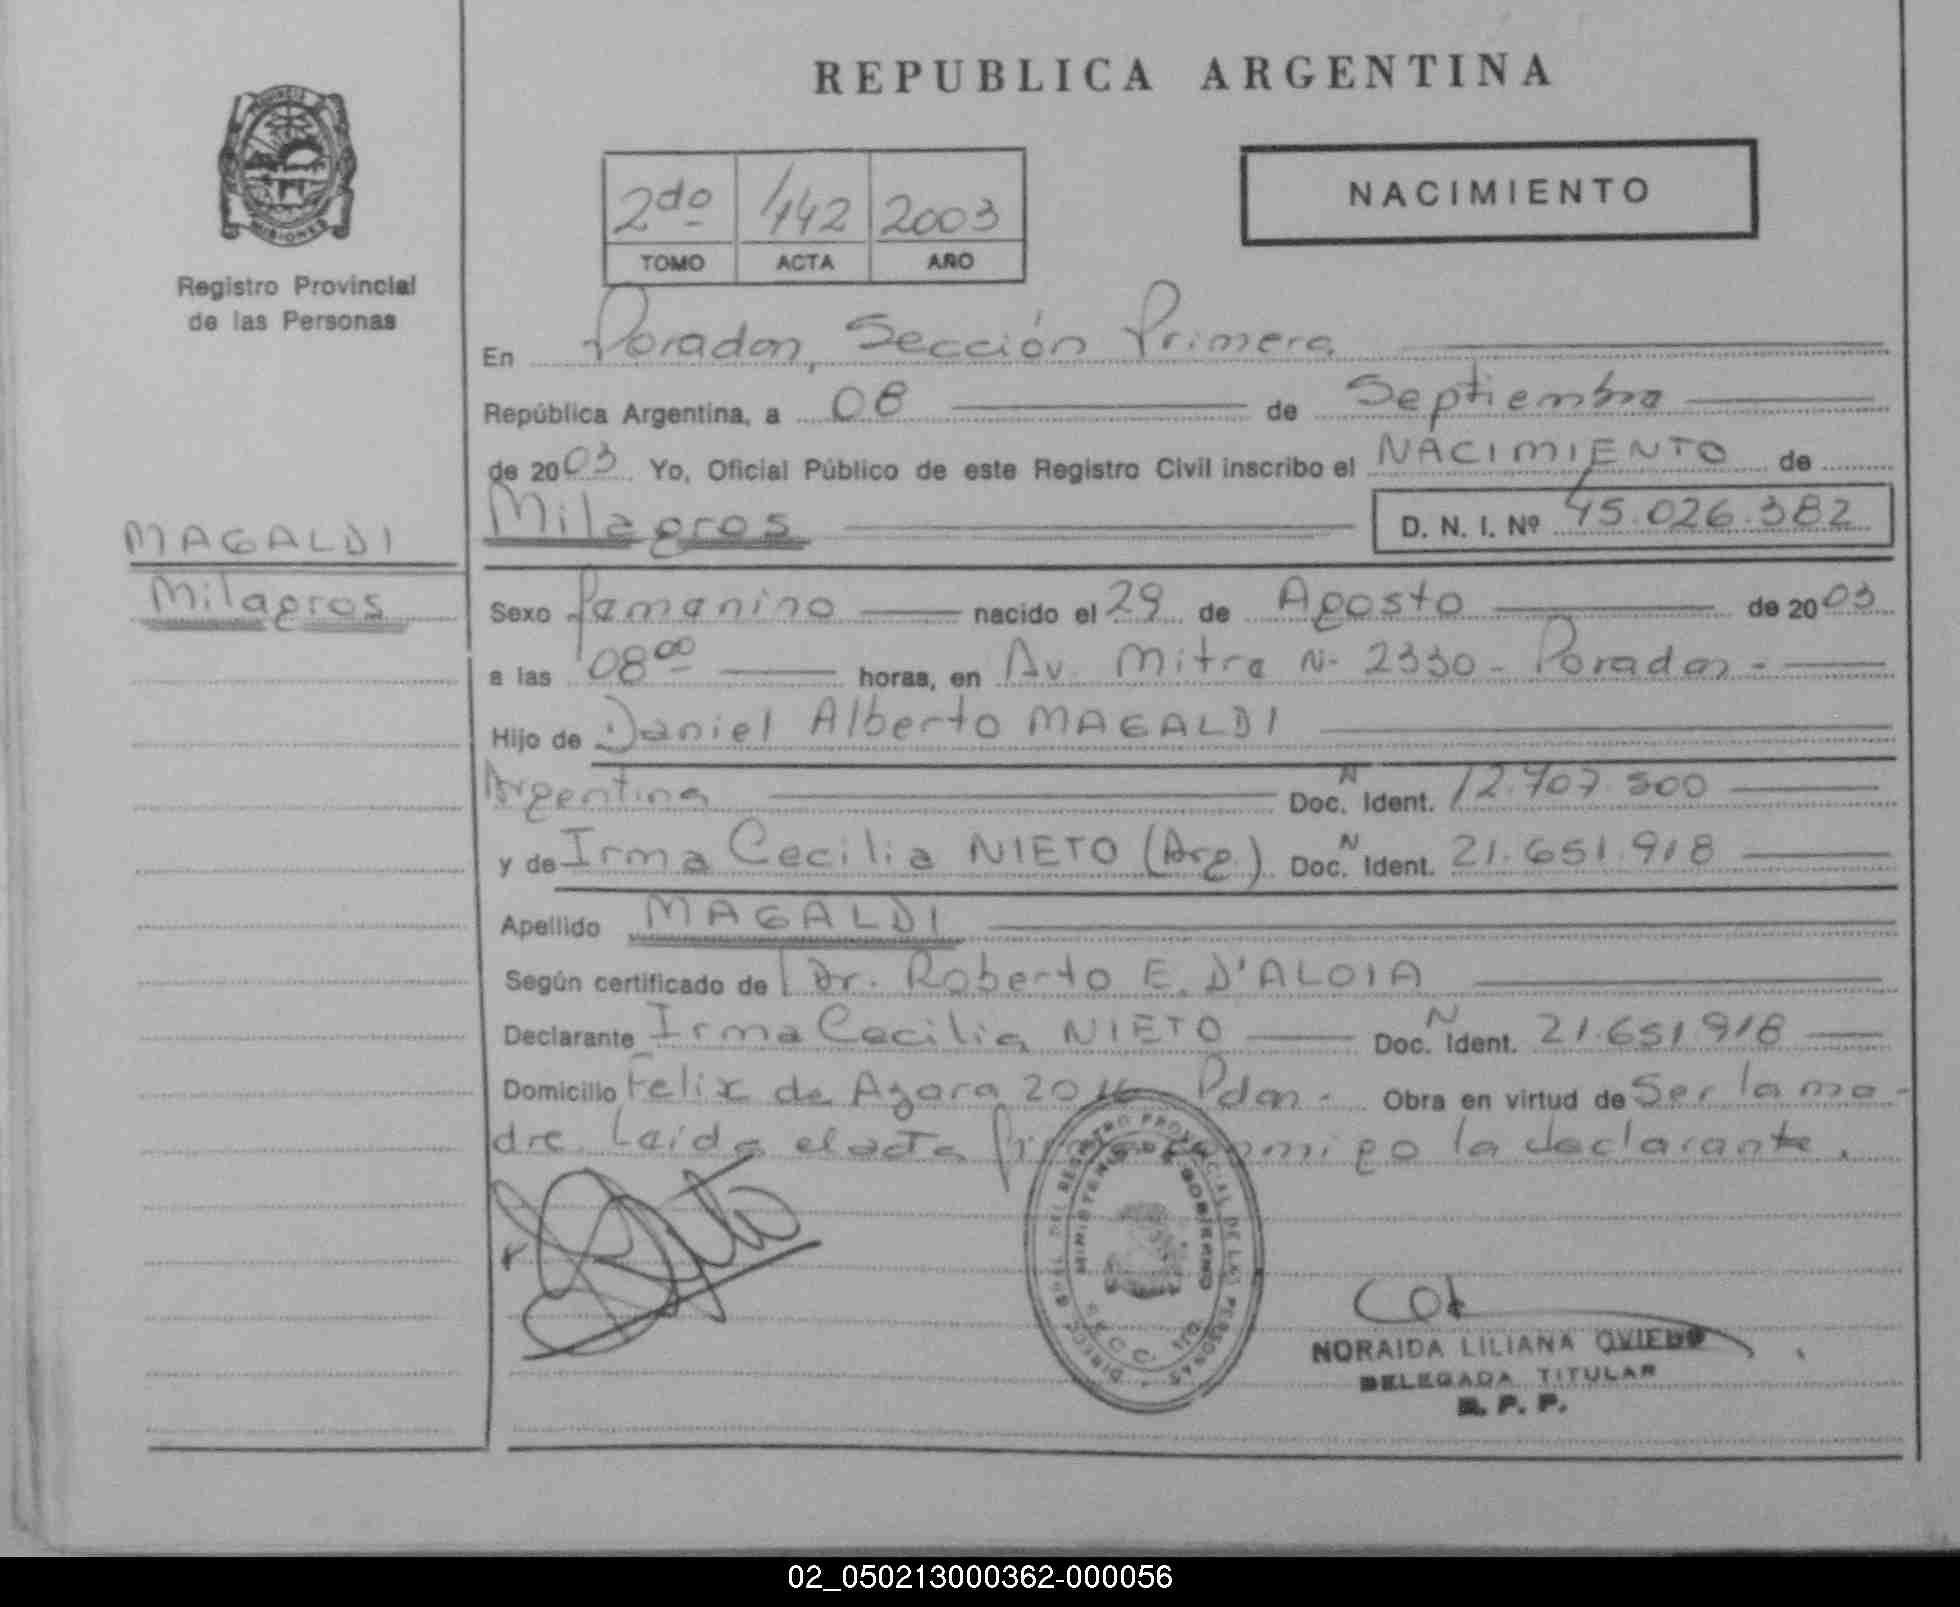 REPUBLICA ARGENTINA
NACIMIENTO
2do 442 2003
TOMO ACTA AÑO
PROVINCIA
MISIONES
Registro Provincial
de las Personas
En Posadas, Sección Primera
República Argentina, a 08 de Septiembre
de 2003 Yo, Oficial Público de este Registro Civil inscribo el NACIMIENTO de
Milagros D. N. I. Nº 45.026.382
MAGALDI
Milagros
Sexo femenino nacido el 29 de Agosto de 2003
a las 08 00 horas, en Av. Mitre N- 2330 - Posadas -
Hijo de Daniel Alberto MAGALDI
Argentina Doc. N Ident. 12.707.300
y de Irma Cecilia NIETO (Arg.) Doc. N Ident. 21.651.918
Apellido MAGALDI
Según certificado de Dr. Roberto E. D'ALOIA
Declarante Irma Cecilia NIETO Doc. N Ident. 21.651.918
Domicilio Felix de Azara 2016 Pdas - Obra en virtud de Ser la ma-
dre. Leida el acta firma conmigo la declarante.
DIRECC. GRAL. DEL REGISTRO PROVINCIAL DE LAS PERSONAS
MINISTERIO DE GOBIERNO
SECC. 1ra
NORAIDA LILIANA OVIEDO
DELEGADA TITULAR
R. P. P.
02_050213000362-000056